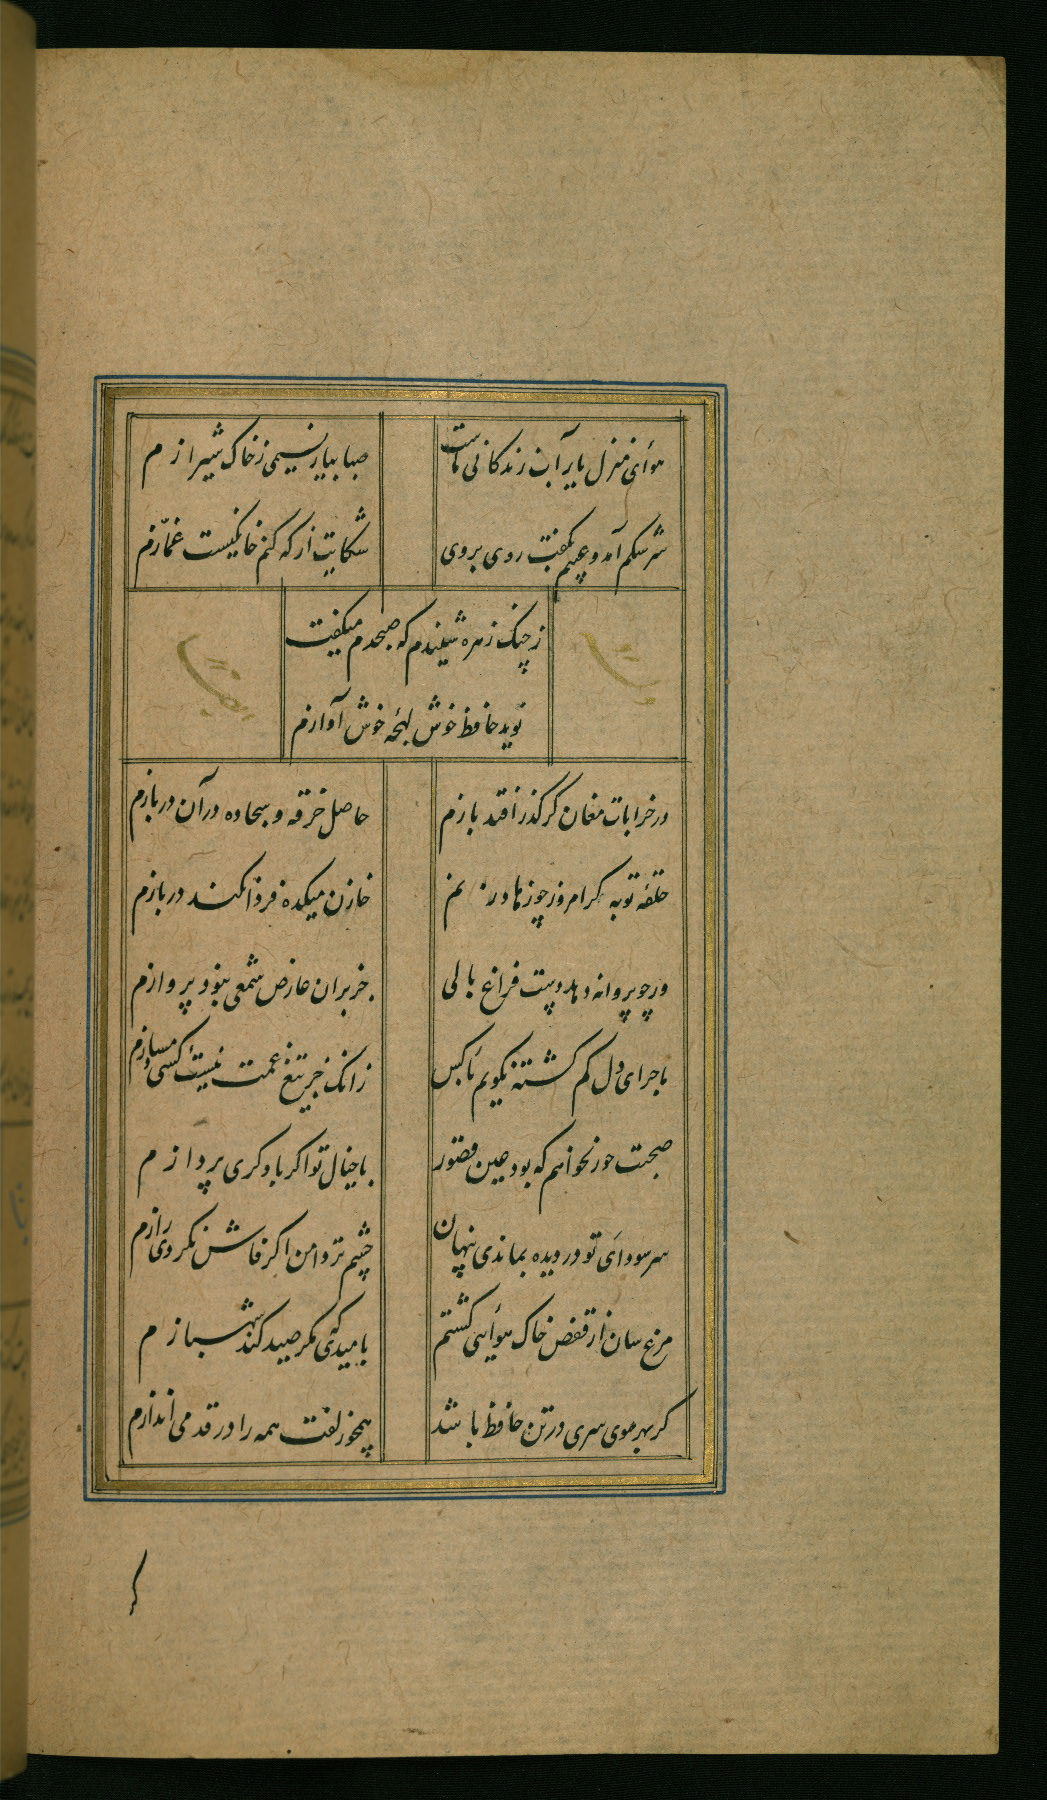 هوای منزل یار آب زندکانی ماست
صبا بیار نسیمی ز خاک شیرازم
سرشکم آمد و عیبم بکفت روی بروی
شکایت از که کنم خانکیست غمّازم
ز چنک زهره شنیدم که صبحدم میکفت
نوید حافظ خوش لهجهٔ خوش آوازم
در خرابات مغان کر کذر افتد بازم
حاصل خرقه و سجاده در آن دربازم
حلقهٔ توبه کر امروز چو زهاد زنم
خازن میکده فردا نکند در بازم
ور چو پروانه دهد دست فراغ بالی
جز بران عارض شمعی نبود پروازم
ماجرای دل کم کشته نکویم با کس
زانک جز تیغ غمت نیست کسی دمسازم
صحبت حور نخواهم که بود عین قصور
با خیال تو اکر با دکری پردازم
سر سودای تو در دیده بماندی پنهان
چشم تر دامن اکر فاش نکردی رازم
مرغ سان از قفص خاک هوایی کشتم
بامیدی که مکر صید کند شهبازم
کر بهر موی سری در تن حافظ باشد
همچو زلفت همه را در قدمی اندازم
کر